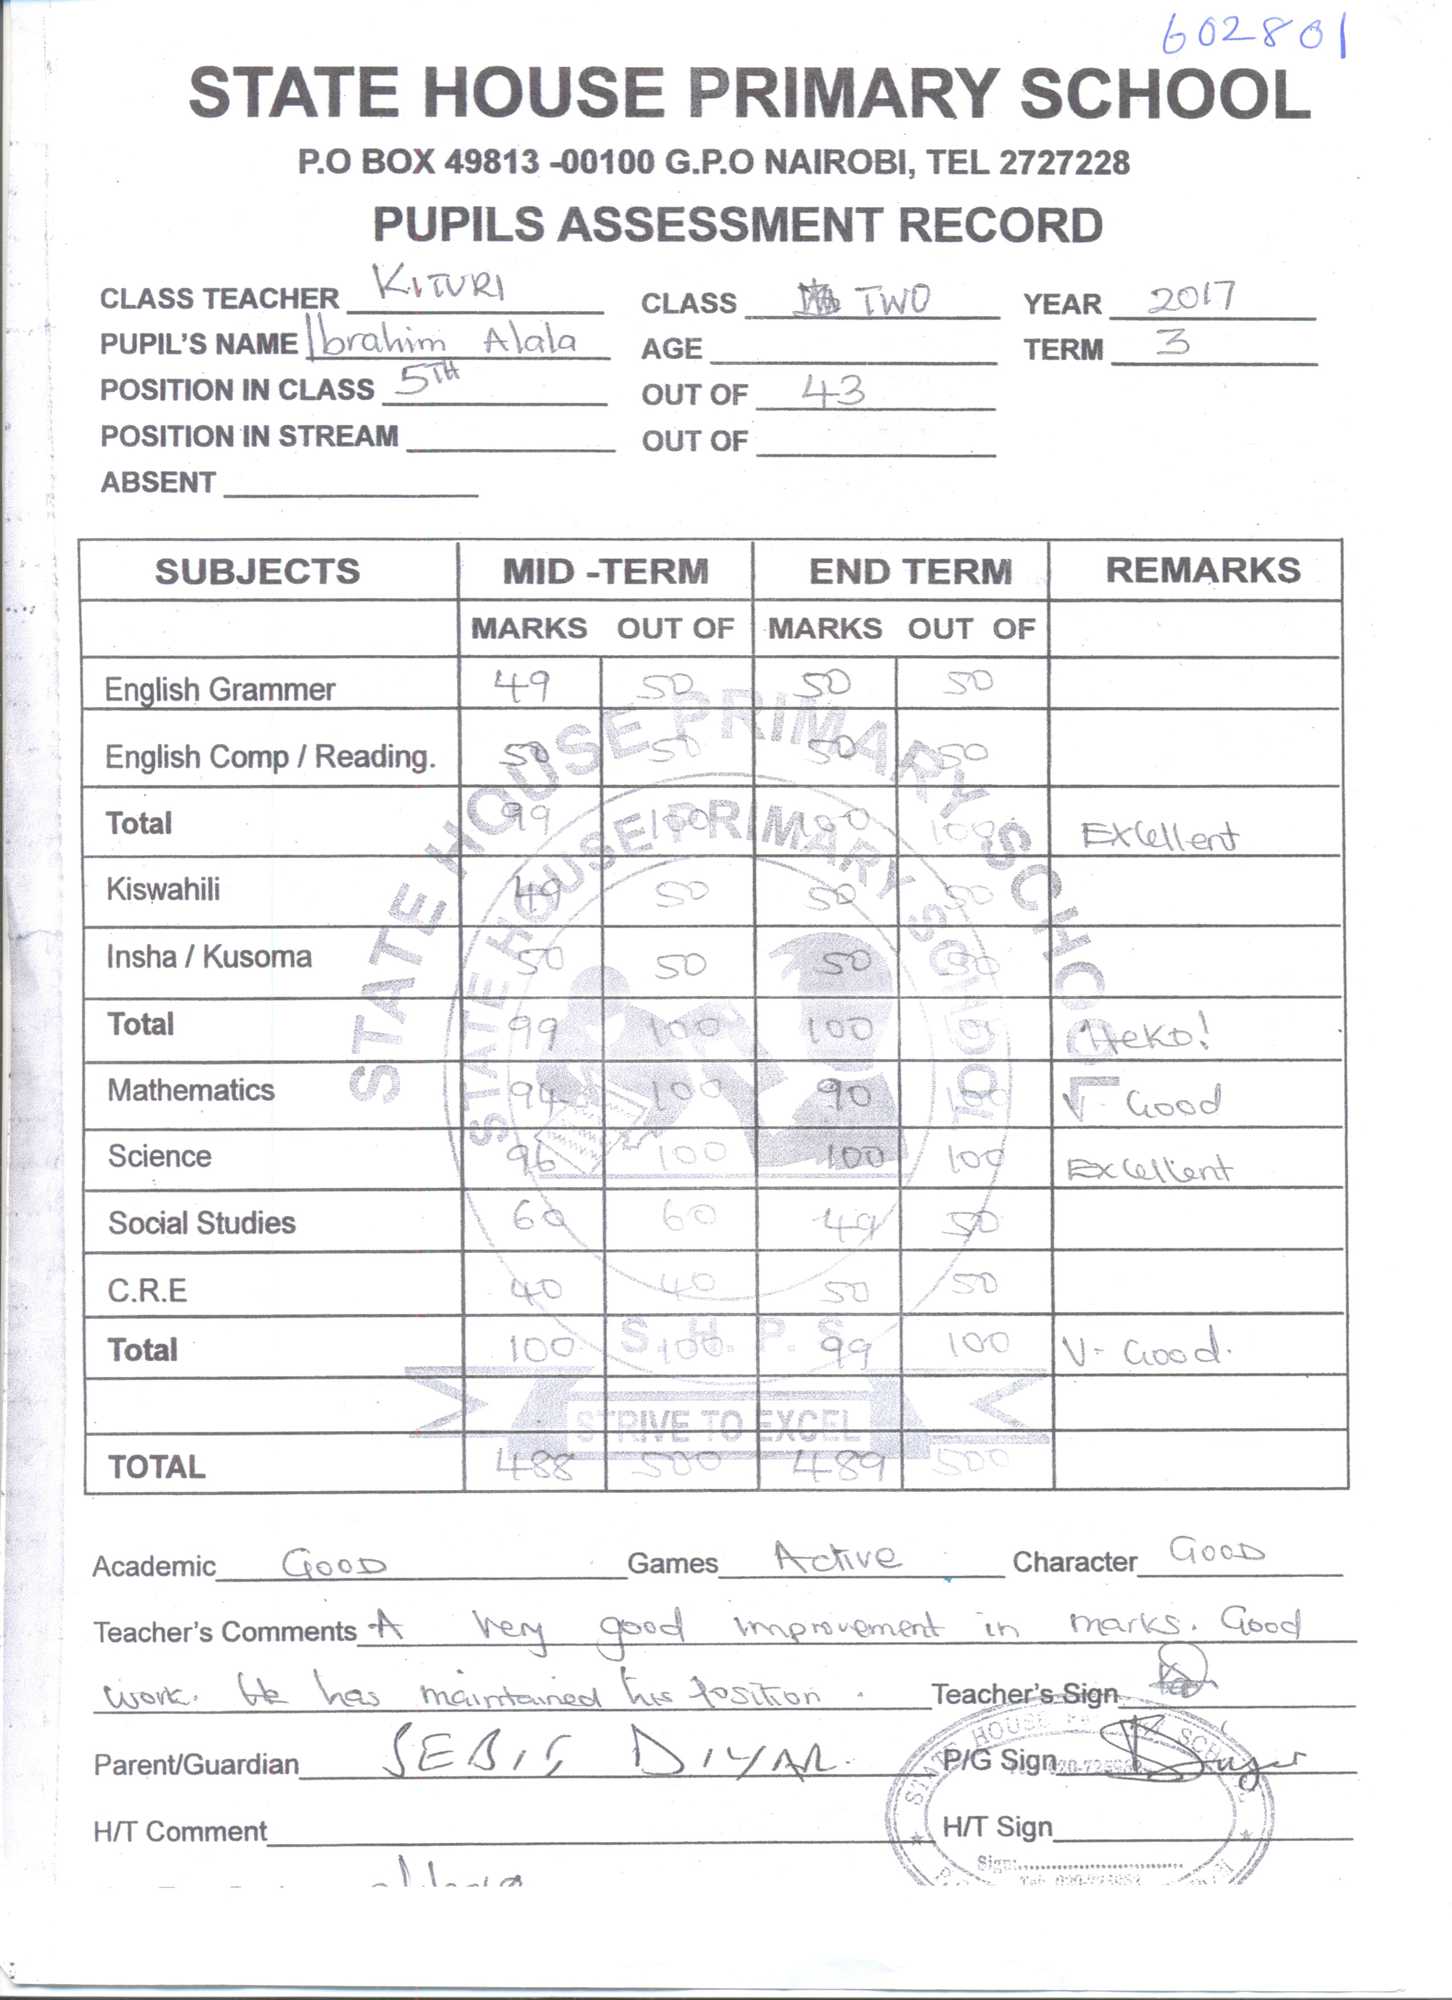 602801
STATE HOUSE PRIMARY SCHOOL
P.O BOX 49813 -00100 G.P.O NAIROBI, TEL 2727228
PUPILS ASSESSMENT RECORD
CLASS TEACHER KITURI CLASS TWO YEAR 2017
PUPIL'S NAME Ibrahim Alala AGE TERM 3
POSITION IN CLASS 5TH OUT OF 43
POSITION IN STREAM OUT OF
ABSENT
SUBJECTS MID -TERM END TERM REMARKS
MARKS OUT OF MARKS OUT OF
English Grammer 49 50 50 50
English Comp / Reading. 50 50 50 50
Total 99 100 100 100 Excellent
Kiswahili 49 50 50 50
Insha / Kusoma 50 50 50 50
Total 99 100 100 100 Heko!
Mathematics 94 100 90 100 V. Good
Science 96 100 100 100 Excellent
Social Studies 60 60 49 50
C.R.E 40 40 50 50
Total 100 100 99 100 V- Good.
TOTAL 488 500 489 500
STATE HOUSE PRIMARY SCHOOL
STATE HOUSE PRIMARY SCHOOL
S.H.P.S
STRIVE TO EXCEL
Academic GOOD Games Active Character GOOD
Teacher's Comments A very good improvement in marks. Good
work. He has maintained his position. Teacher's Sign
Parent/Guardian DIYAR. P/G Sign
H/T Comment H/T Sign
STATE HOUSE SCHOOL
Sign: